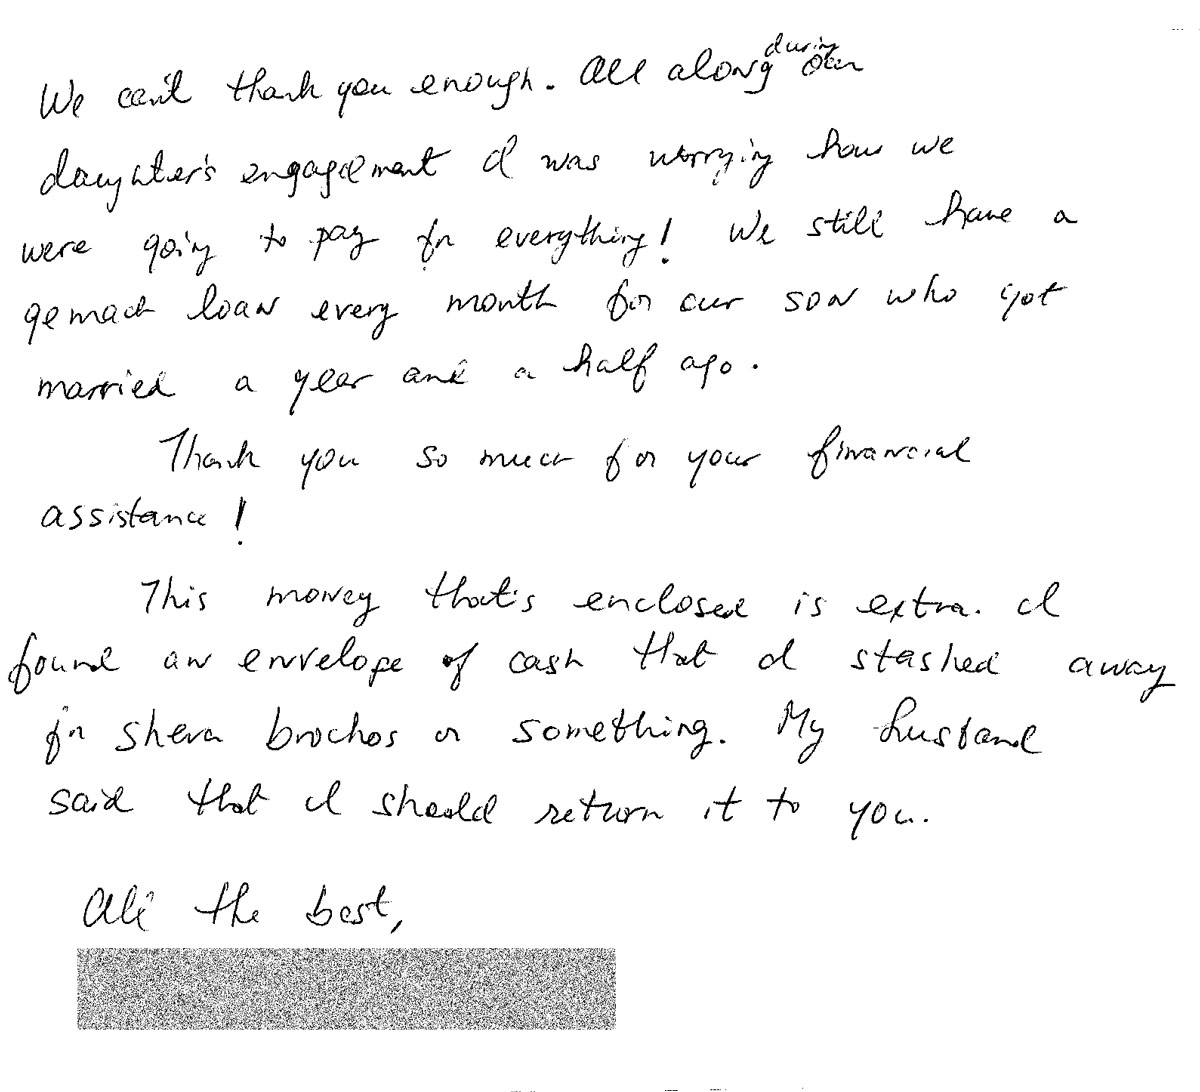 We can't thank you enough. All along during our
daughter's engagement I was worrying how we
were going to pay for everything! We still have a
gemach loan every month for our son who got
married a year and a half ago.
Thank you so much for your financial
assistance!
This money that's enclosed is extra. I
found an envelope of cash that I stashed away
for sheva brochos or something. My husband
said that I should return it to you.
All the best,